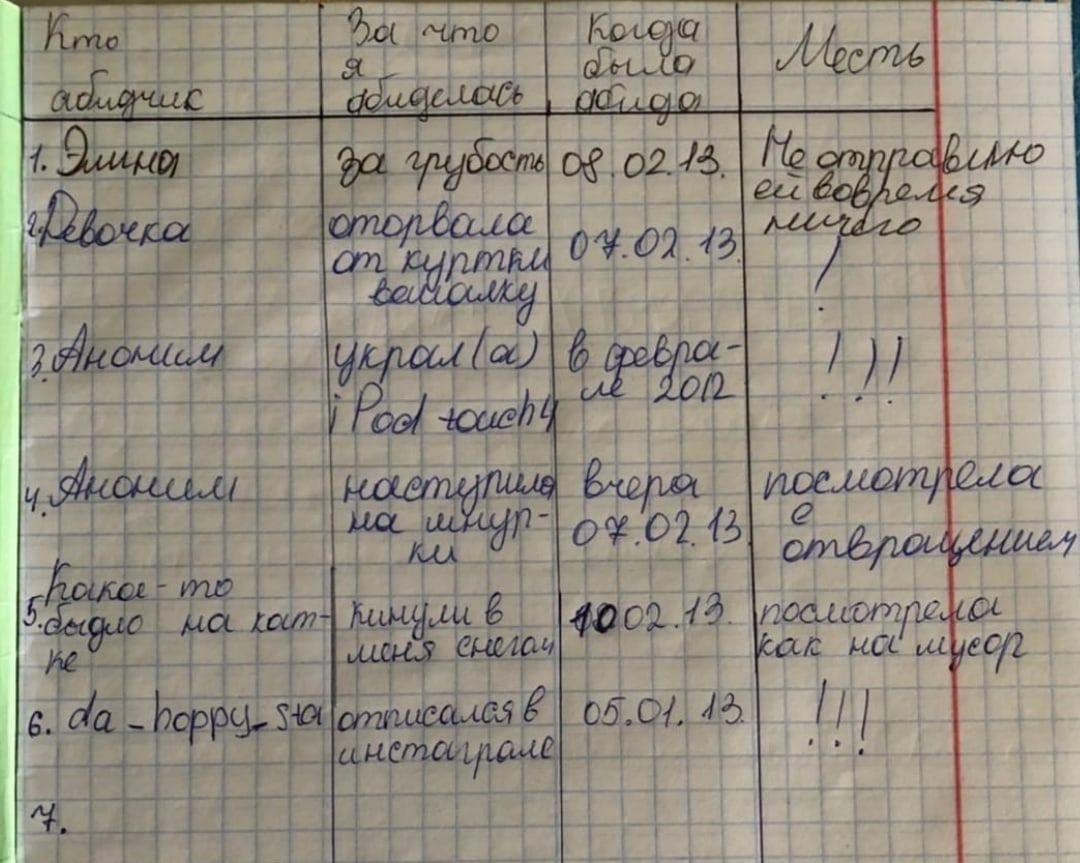 Кто За что Когда Месть
я была
абидчик абиделась абида
1. Элина за грубость 08.02.13. Не отправлю
ей вовремя
2. Девочка оторвала 07.02.13. ничего
от куртки !
вешалку
3. Аноним украл(а) в февра- !!!
ле 2012
iPod touch 4
4. Аноним наступила вчера посмотрела
на шнур- 07.02.13. с
ки отвращением
Какое-то
5. быдло на кат- кинули в 10 02.13. посмотрела
ке меня снегом как на мусор
6. da_happy_sta отписался в 05.01.13. !!!
инстаграме
7.